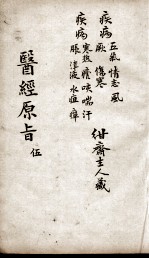 疾病 五氣 情志 風
厥 傷寒
疾病 寒熱 瘧 咳 喘 汗
脹 津液 水 疽 痺
紺齋主人藏
醫經原旨 伍